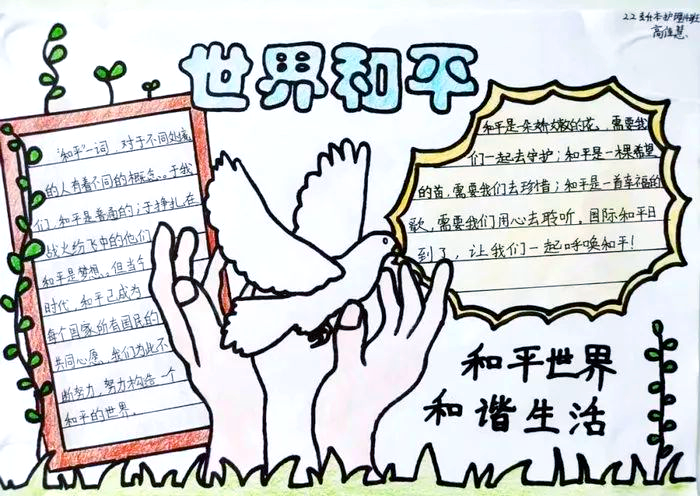 世界和平
"和平"一词，对于不同处境
的人有着不同的概念。于我
们，和平是普通的；于挣扎在
战火纷飞中的他们
和平是梦想。但当今
时代，和平已成为
每个国家所有国民的
共同心愿。我们为此不
断努力，努力构造一个
和平的世界。
和平是一朵娇嫩的花，需要我
们一起去守护；和平是一棵希望
的苗，需要我们去珍惜；和平是一首幸福的
歌，需要我们用心去聆听，国际和平日
到了，让我们一起呼唤和平！
和平世界
和谐生活